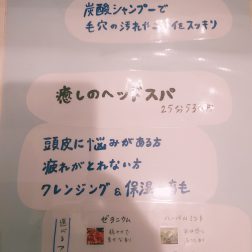 炭酸シャンプーで
毛穴の汚れ スッキリ
癒しのヘッドスパ
25分
頭皮に悩みがある方
疲れがとれない方
クレンジング&保湿 育毛
選べる
ゼラニウム
ハーバルミント